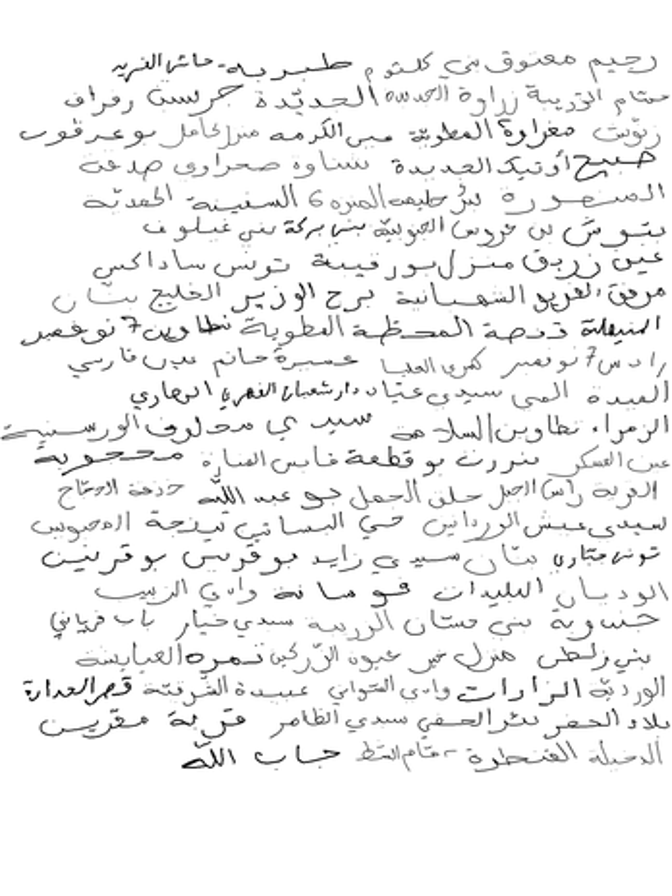 رجيم معتوق بني كلثوم طبربة حاشي الفريد
حمام الزريبة زراوة الجديدة الحديدة جرسين رفراف
زنوش مغراوة المطوية عين الكرمة منزل كامل بوعرقوب
ضبيع أوتيك الجديدة شناوة صحراوي صدقت
المنصورة بئر حليمة المنزه 6 السفينة المحمدية
بتوش بن عروس الجنوبية بني بركة بني غيلوف
عين زريق منزل بورقيبة تونس ساداكس
مرفق الفريد الشعبانية برج الوزير الخليج بنان
السيقلة قفصة المحطة العطوية تطاوين 7 نوفمبر
رادس 7 نوفمبر كمرى العليا عميرة حاتم عين فارسي
العبدة المي سيدي عياد دار شعبان الفهري الهاري
الزهراء تطاوين السلامة سيدي مخلوف الورسنية
عين العسكر بنزرت بوقطعة قابس المنارة محجوبة
القرية رأس الجبل حلق الجمل بو عبد الله خزمة الدجاج
سيدي عيش الورداين حي البساتين نيزحة المحبوس
تونس حتاري بنان سيدي زايد بوقريس بوقرنين
الوديان البليدات فوسانة وادي الزبيب
جنوبة بني حسان الزريبة سيدي خيار باب قرباني
بني زلطن منزل حر عبون الزركين نمره العبابسة
الوردية الزارات وادي الخواني عبيدة الشرقية قصر العذارة
بلاد الحضر بئر الحفي سيدي الظاهر قرية مقرين
الدخيلة القنطرة حمام الشط جاب الله